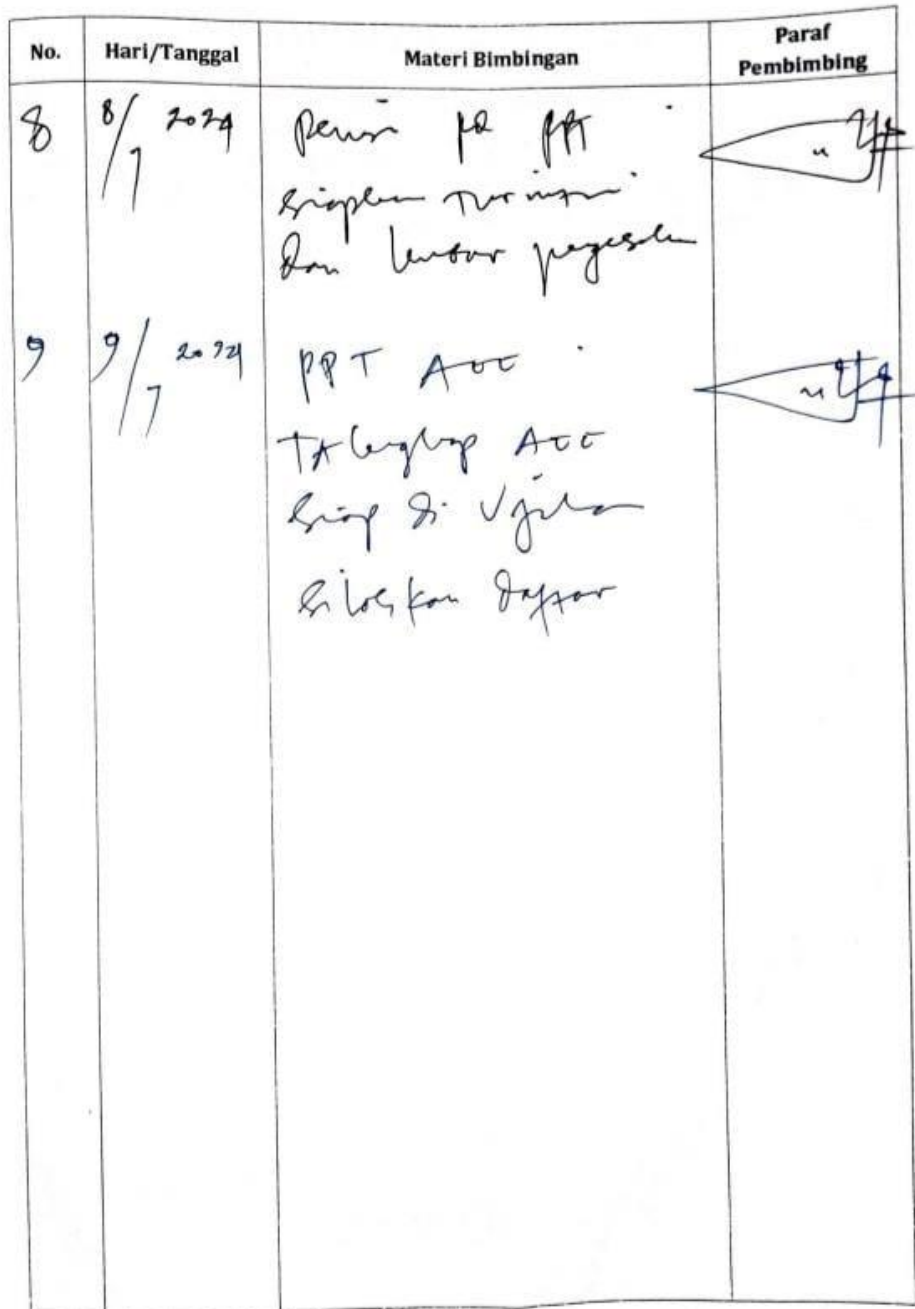 No. Hari/Tanggal Materi Bimbingan Paraf Pembimbing
8 8/7 2024 PPT
siapkan
dan lembar pengesahan
9 9/7 2024 PPT ACC
TA lengkap ACC
Siap di Ujikan
Silahkan Daftar